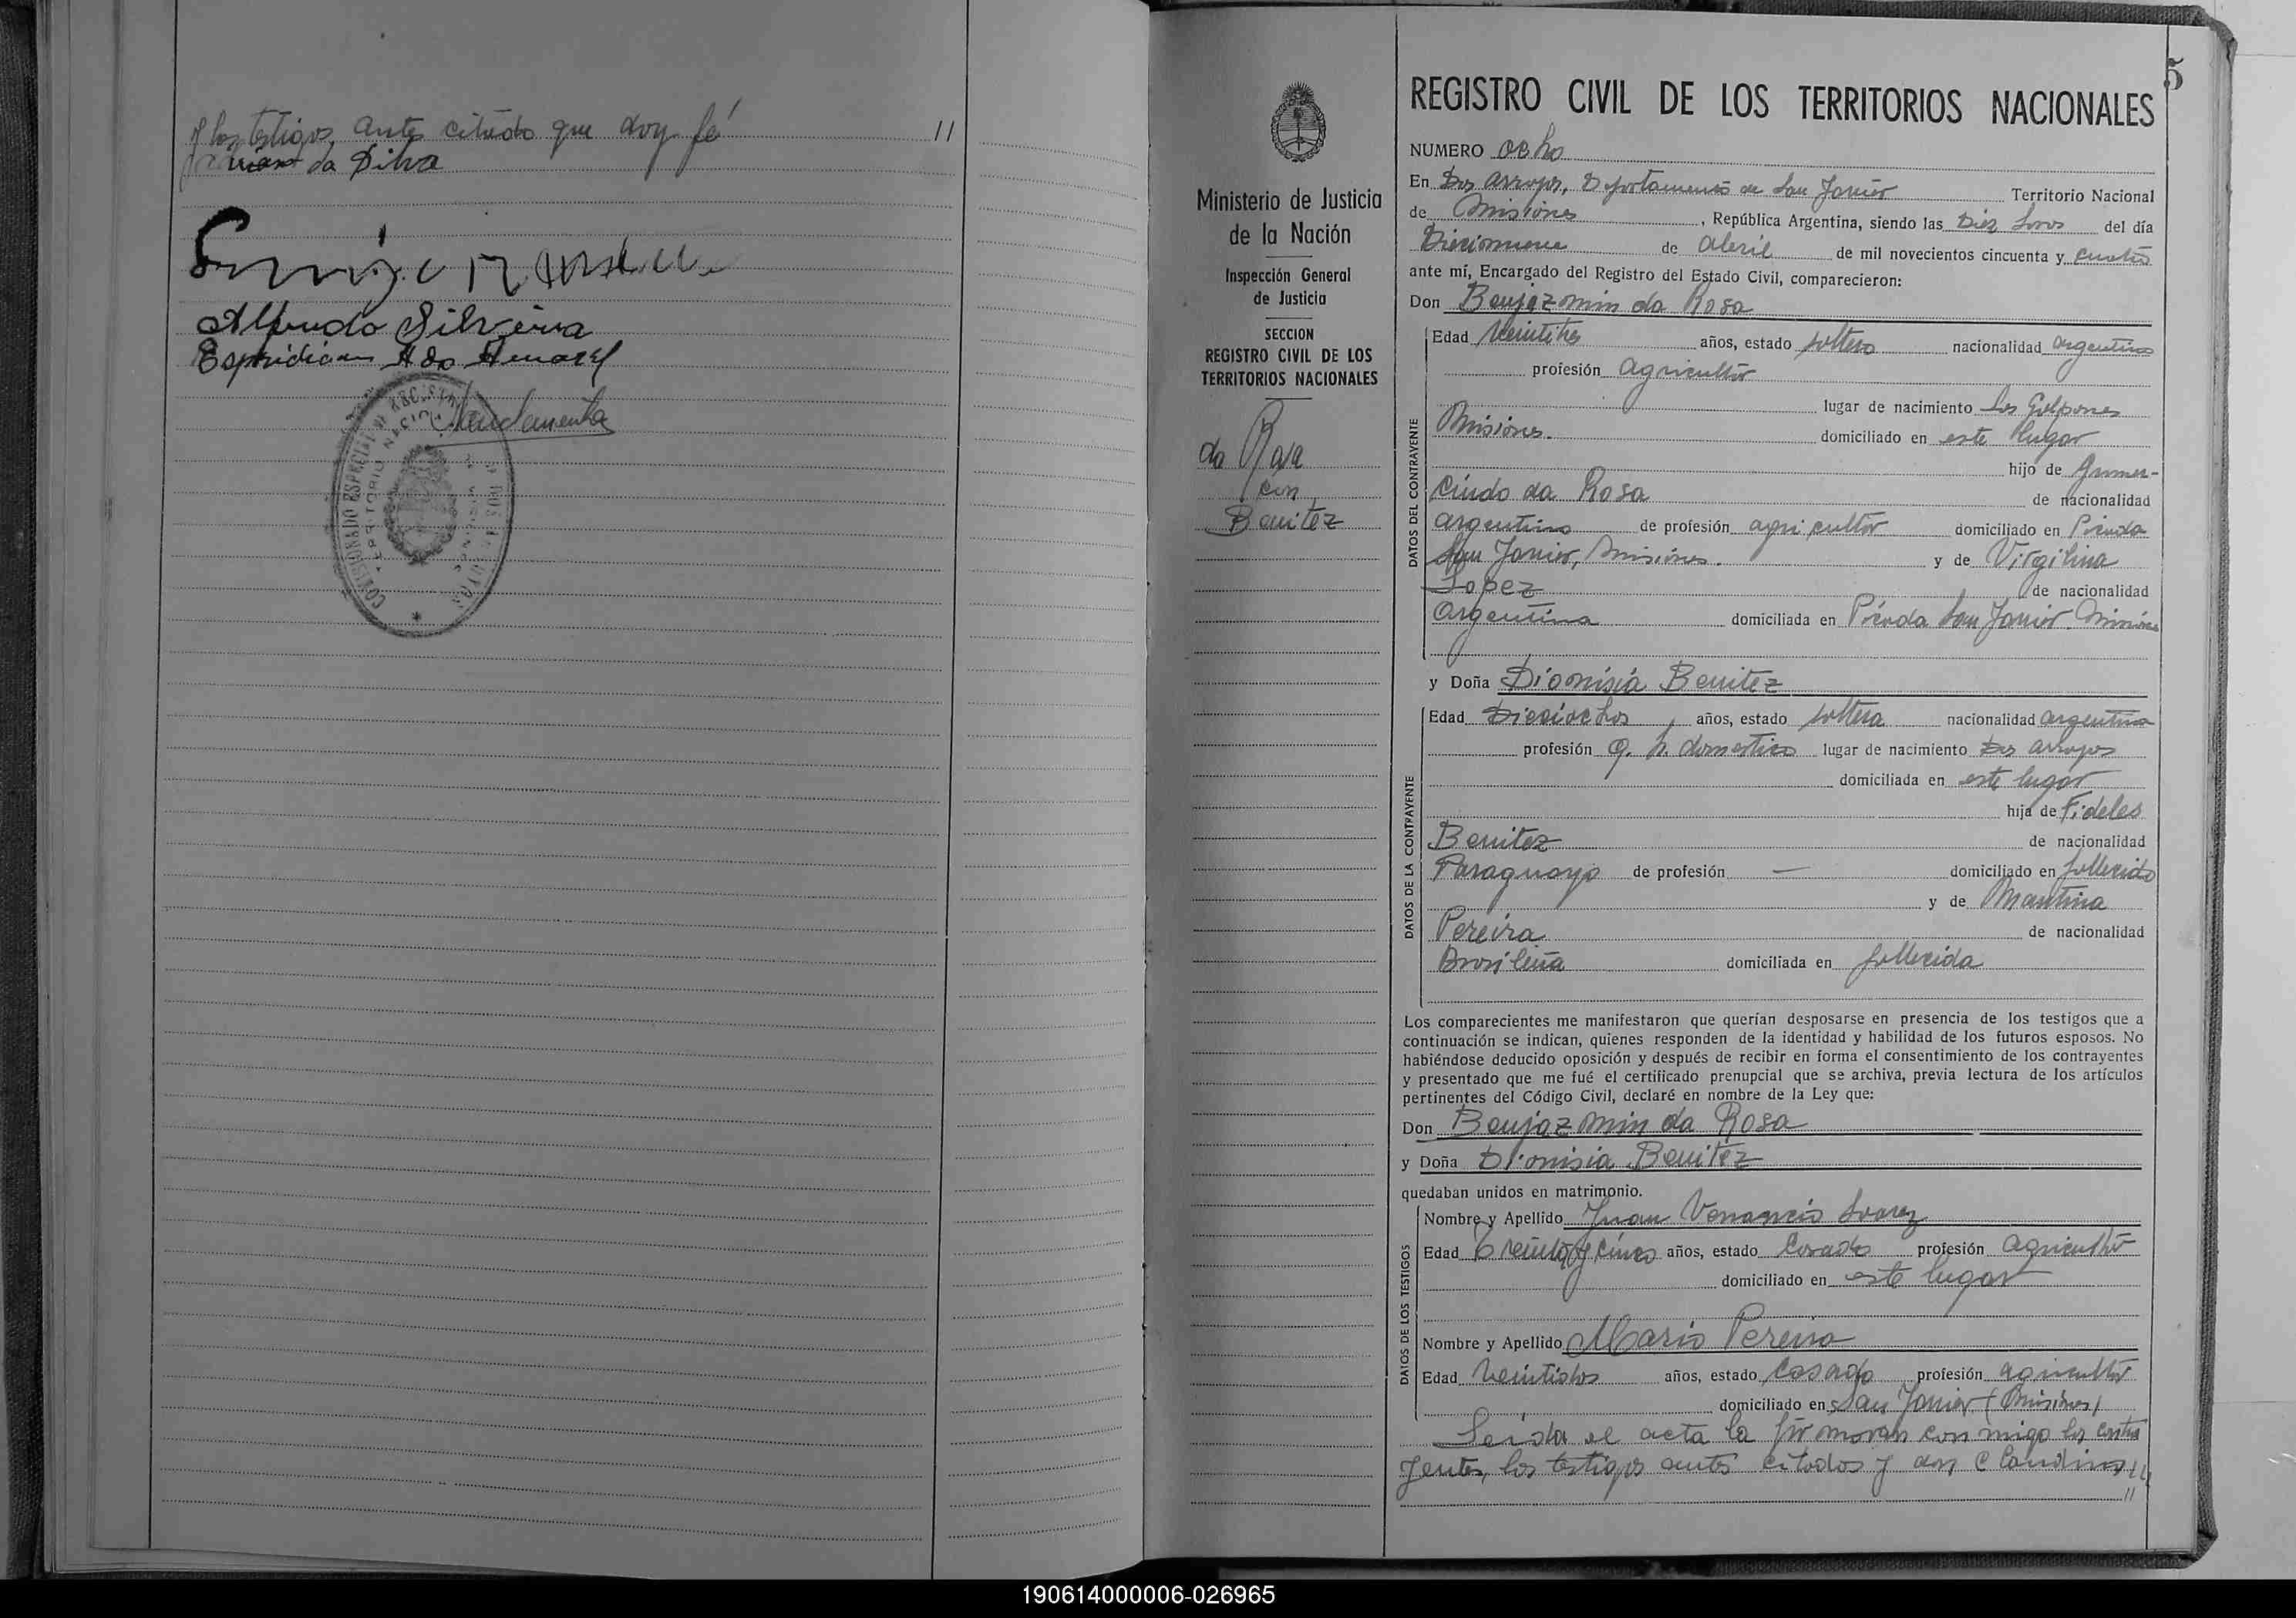 y los testigos, antes citado que doy fé 11
da Silva
Alfredo Silveira
COMISIONADO ESPECIAL DE REGISTRO
TERRITORIO NACIONAL
5
REGISTRO CIVIL DE LOS TERRITORIOS NACIONALES
Ministerio de Justicia
de la Nación
Inspección General
de Justicia
SECCION
REGISTRO CIVIL DE LOS
TERRITORIOS NACIONALES
da Rosa
con
Benitez
NUMERO ocho
En Dos arroyos, Departamento de San Javier Territorio Nacional
de Misiones, República Argentina, siendo las Diez horas del día
Diecinueve de Abril de mil novecientos cincuenta y cuatro
ante mí, Encargado del Registro del Estado Civil, comparecieron:
Don Benjazmin da Rosa
DATOS DEL CONTRAYENTE
Edad Veintitres años, estado soltero nacionalidad argentino
profesión agricultor
lugar de nacimiento Los Galpones
Misiones. domiciliado en este lugar
hijo de Gumer-
cindo da Rosa de nacionalidad
argentino de profesión agricultor domiciliado en Picada
San Javier, Misiones. y de Virgilina
Lopez de nacionalidad
Argentina domiciliada en Picada San Javier Misiones
y Doña Dionisia Benitez
DATOS DE LA CONTRAYENTE
Edad Dieciochos, años, estado soltera nacionalidad argentina
profesión Q. h. domestico lugar de nacimiento Dos arroyos
domiciliada en este lugar
hija de Fideles
Benitez de nacionalidad
Paraguayo de profesión — domiciliado en fallecido
y de Mantina
Pereira de nacionalidad
Brasileña domiciliada en fallecida
Los comparecientes me manifestaron que querían desposarse en presencia de los testigos que a
continuación se indican, quienes responden de la identidad y habilidad de los futuros esposos. No
habiéndose deducido oposición y después de recibir en forma el consentimiento de los contrayentes
y presentado que me fué el certificado prenupcial que se archiva, previa lectura de los artículos
pertinentes del Código Civil, declaré en nombre de la Ley que:
Don Benjazmin da Rosa
y Doña Dionisia Benitez
quedaban unidos en matrimonio.
DATOS DE LOS TESTIGOS
Nombre y Apellido Juan Venancio Suarez
Edad Treinta y cinco años, estado Casado profesión agricultor
domiciliado en este lugar
Nombre y Apellido Mario Pereira
Edad Veintidos años, estado Casado profesión agricultor
domiciliado en San Javier (Misiones)
Leida el acta la firmaran con migo los contra
yentes, los testigos antes citados y don Claudino 11
11
190614000006-026965